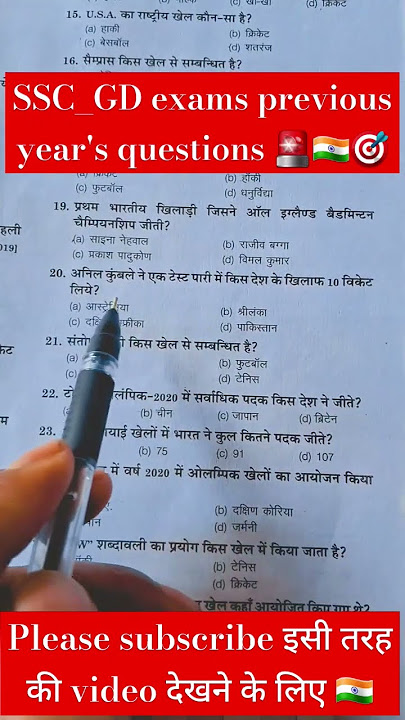 (d) क्रिकेट
15. U.S.A. का राष्ट्रीय खेल कौन-सा है?
(a) हाकी (b) क्रिकेट
(c) बेसबॉल (d) शतरंज
16. सैम्प्रास किस खेल से सम्बन्धित है?
SSC_GD exams previous
year's questions 🚨🇮🇳🎯
(a) क्रिकेट (b) हॉकी
(c) फुटबॉल (d) धनुर्विद्या
19. प्रथम भारतीय खिलाड़ी जिसने ऑल इग्लैण्ड बैडमिन्टन
चैम्पियनशिप जीती?
हली
(a) साइना नेहवाल (b) राजीव बग्गा
019]
(c) प्रकाश पादुकोण (d) विमल कुमार
20. अनिल कुंबले ने एक टेस्ट पारी में किस देश के खिलाफ 10 विकेट
लिये?
(a) (b) श्रीलंका
(c) (d) पाकिस्तान
21. किस खेल से सम्बन्धित है?
(b) फुटबॉल
(d) टेनिस
22. 2020 में सर्वाधिक पदक किस देश ने जीते?
(b) चीन (c) जापान (d) ब्रिटेन
23. खेलों में भारत ने कुल कितने पदक जीते?
(b) 75 (c) 91 (d) 107
में वर्ष 2020 में ओलम्पिक खेलों का आयोजन किया
(b) दक्षिण कोरिया
(d) जर्मनी
W” शब्दावली का प्रयोग किस खेल में किया जाता है?
(b) टेनिस
(d) क्रिकेट
खेल कहाँ आयोजित किए गए थे?
Please subscribe इसी तरह
की video देखने के लिए 🇮🇳